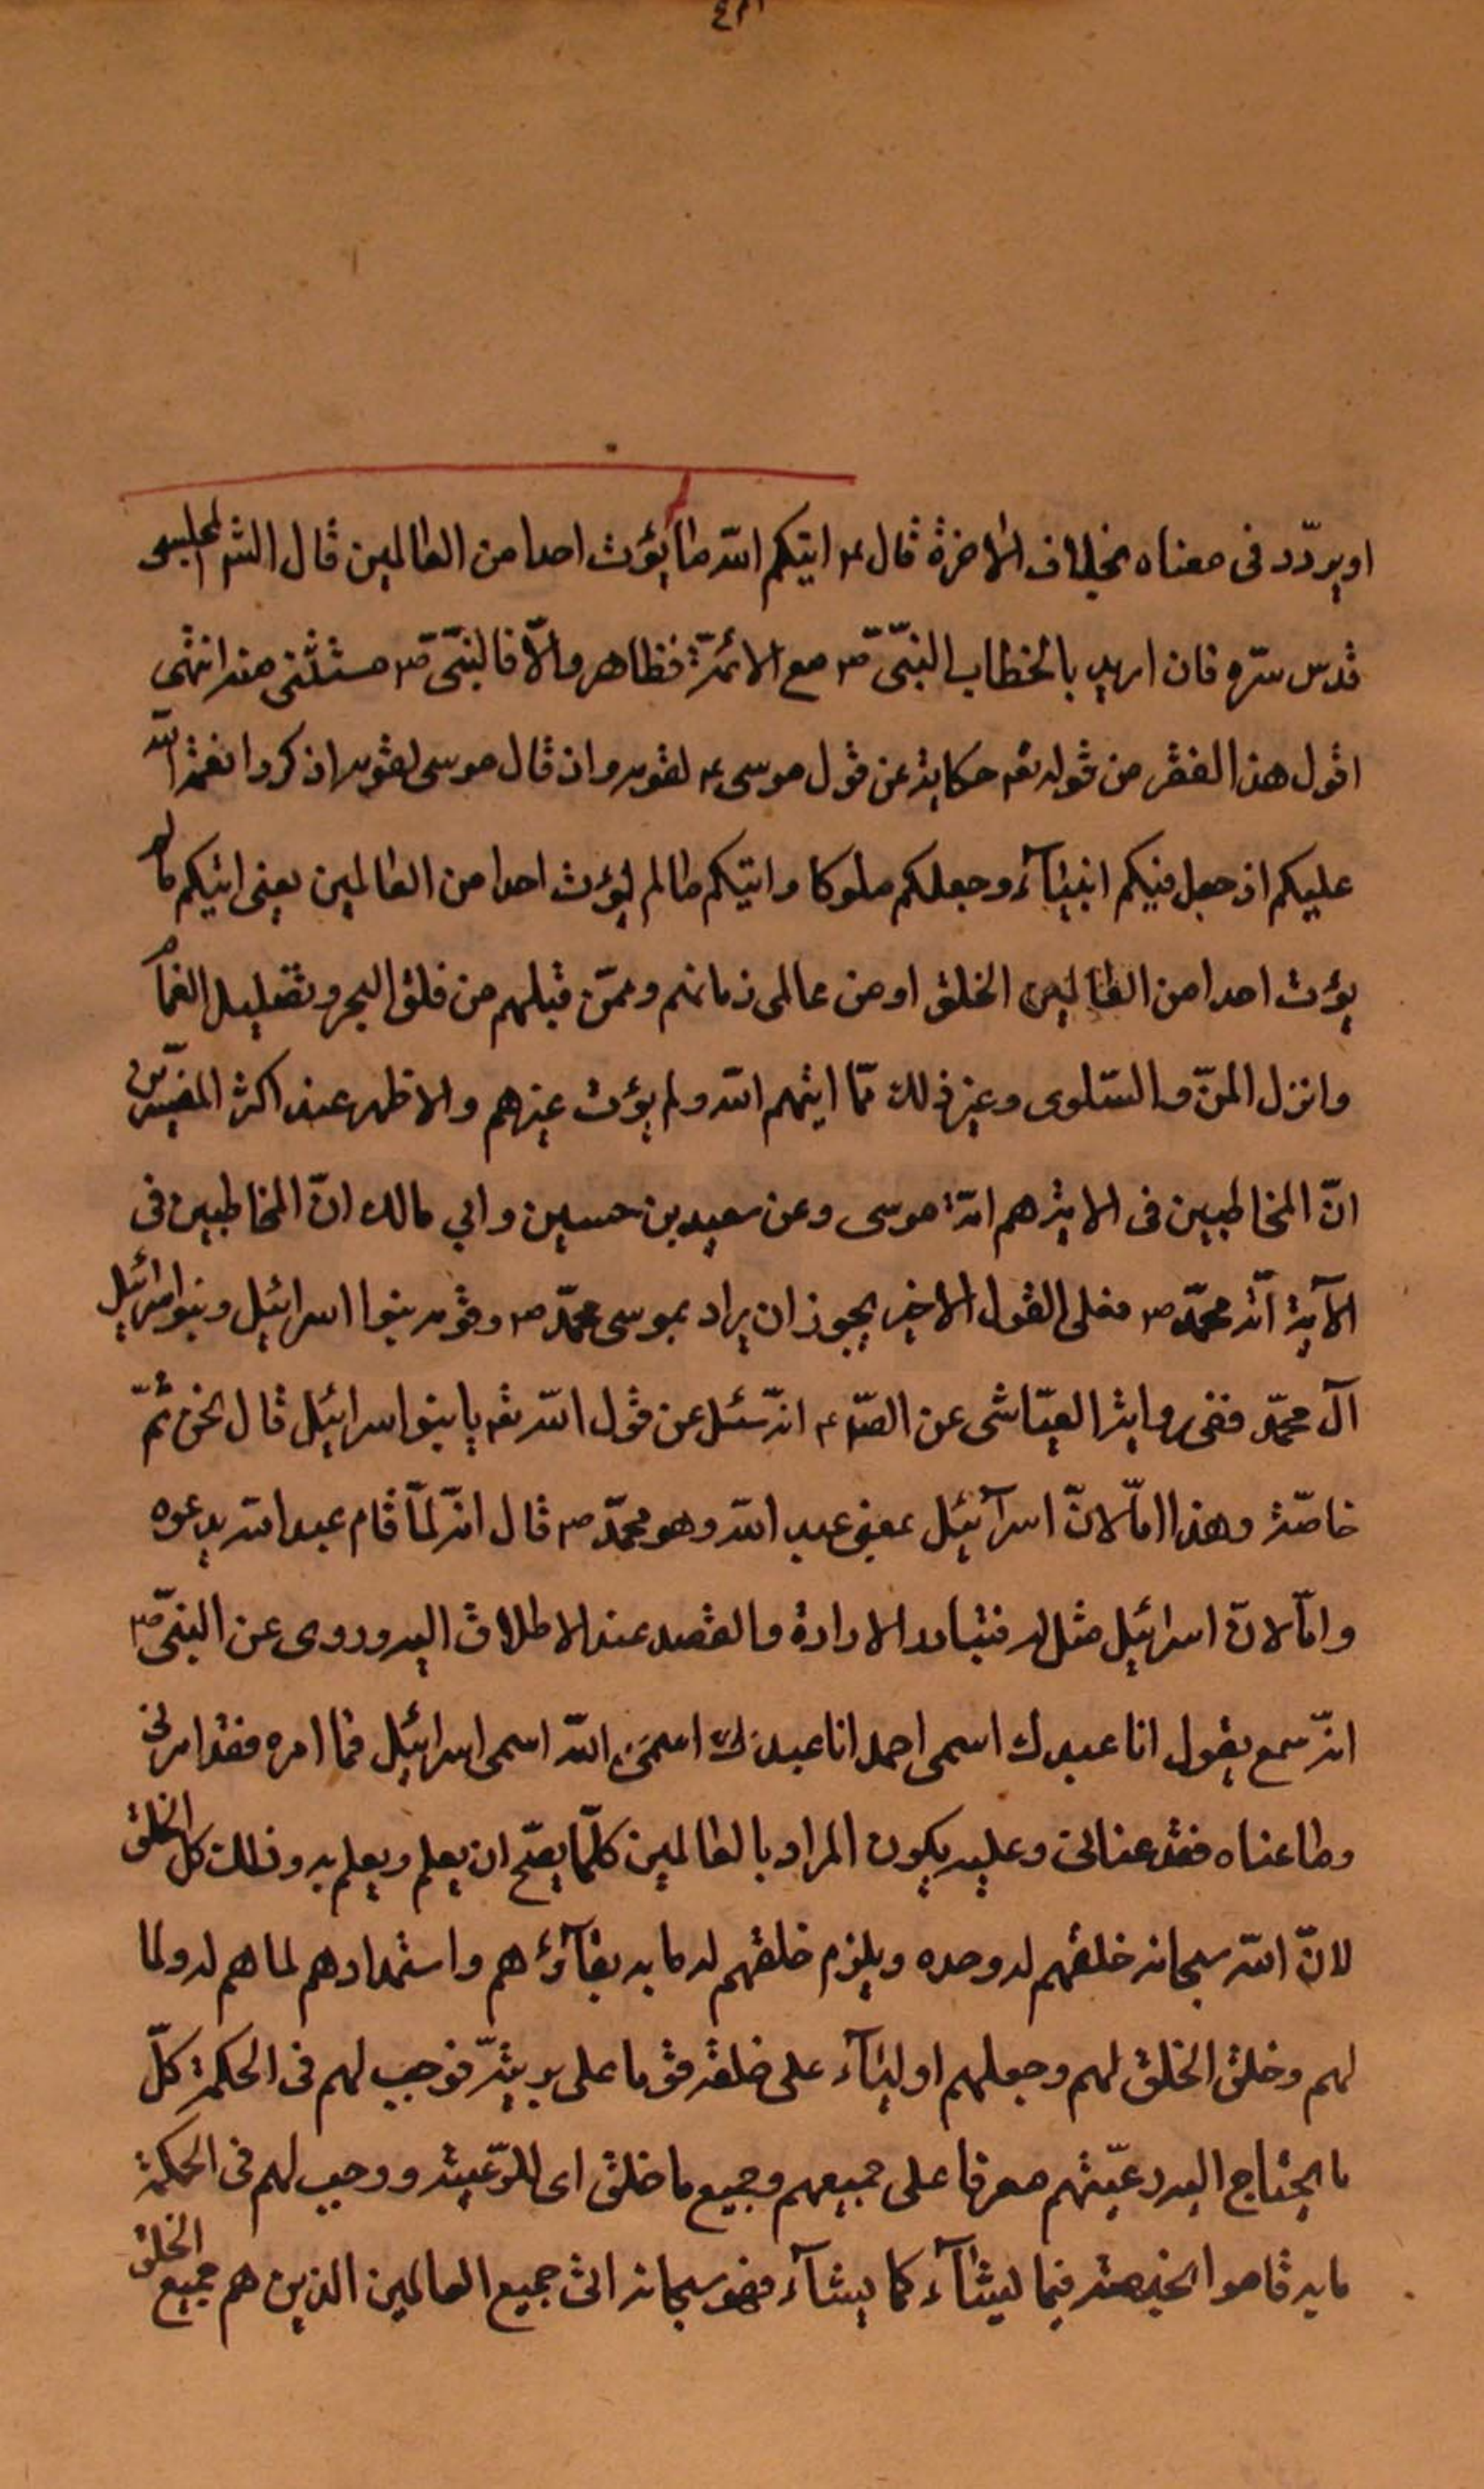 او يردّد فى معناه بخلاف الاخرة قال ع اتيكم الله ما لم يؤت احدا من العالمين قال الشر المجلسى
قدس سرّه فان اريد بالخطاب النبىّ ص مع الائمّة فظاهر والّا فالنبىّ ص مستثنى منه انتهى
اقول هذا الفقر من قوله تعه حكاية عن قول موسى ع لقومه واذ قال موسى لقومه اذكروا نعمة الله
عليكم اذ جعل فيكم انبيآء وجعلكم ملوكا واتيكم ما لم يؤت احدا من العالمين يعنى اتيكم ما لم
يؤت احدا من العالمين الخلق او من عالمى زمانهم وممّن قبلهم من فلق البحر وتظليل الغمام
وانزل المنّ والسّلوى وغير ذلك ممّا اتيهم الله ولم يؤت غيرهم والاظهر عند اكثر المفسّرين
انّ المخاطبين فى الاية هم امّة موسى وعن سعيد بن حسين وابي مالك انّ المخاطبين فى
الآية امّة محمّد ص فعلى القول الاخير يجوز ان يراد بموسى محمّد ص وقومه بنوا اسرائيل وبنوا اسرائيل
آل محمّد ففى رواية العيّاشى عن الصّ ع انه سئل عن قول الله تعه يا بنوا اسرائيل قال نحن ثمّ
خاصّة وهذا امّا لانّ اسرآئيل بمعنى عبد الله وهو محمّد ص قال انه لمّا قام عبد الله يدعوه
وامّا لانّ اسرائيل مثل له فتبادر الارادة والقصد عند الاطلاق اليه وروى عن النبىّ ص
انه سمع يقول انا عبدك اسمى احمد انا عبدك اسمى الله اسمى اسرائيل فما امره فقد امرنى
وما عناه فقد عنانى وعليه يكون المراد بالعالمين كلّما يصحّ ان يعلم ويعلم به وذلك كل الخلق
لانّ الله سبحانه خلقهم له وحده ويلزم خلقهم له ما به بقآؤهم واستمدادهم لما هم له ولما
لهم وخلق الخلق لهم وجعلهم اوليآء على خلقه قوما على بريته فوجب لهم فى الحكمة كلّ
ما يحتاج اليه رعيّتهم معرفا على جميعهم وجميع ما خلق اى للرّعيته ووجب لهم فى الحكمة
ما به قاموا فيما يشآء كما يشآء فهو سبحانه اتى جميع العالمين الذين هم جميع الخلق